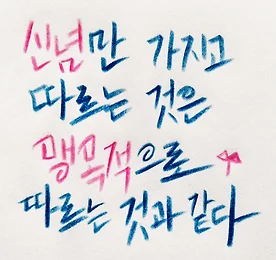 신념만 가지고
따르는 것은
맹목적으로
따르는 것과 같다